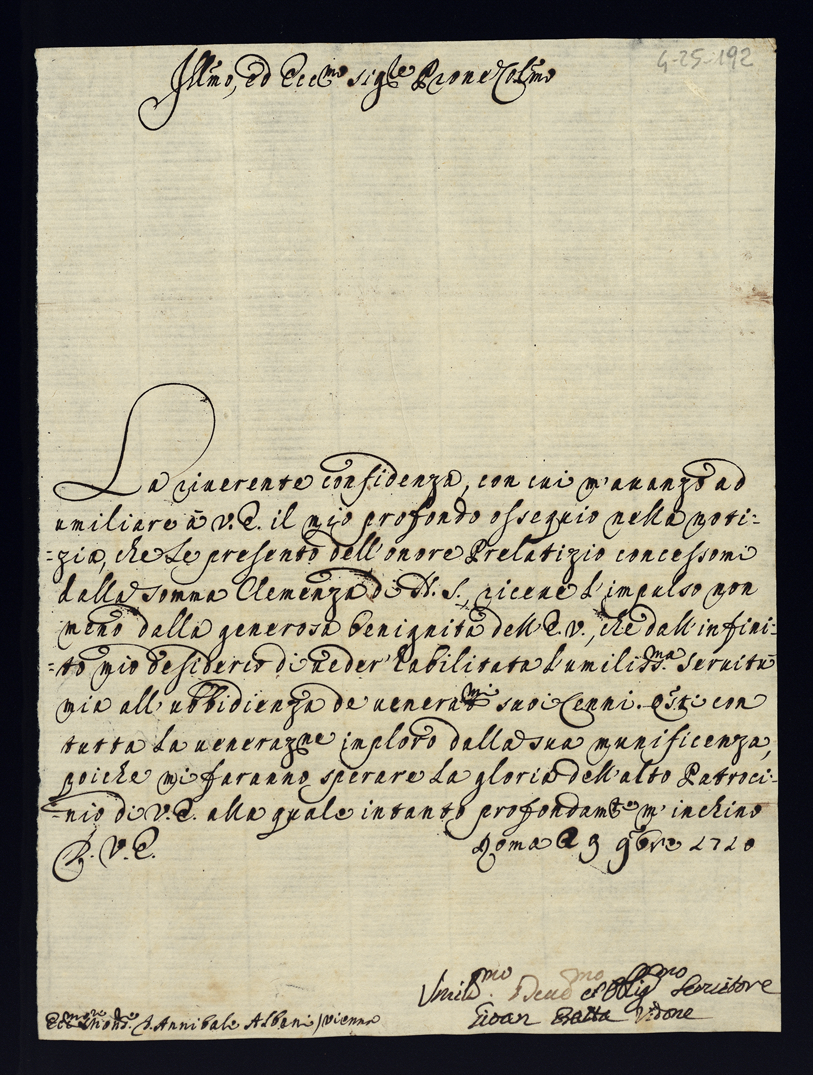 4-25-192
Illmo, ed Eccmo Sigre Prone Colmo
La riuerente confidenza, con cui m'auanzo ad
umiliare à V.E. il mio profondo ossequio nella noti=
=zia, che Le presento dell'onore Prelatizio concessomi
dalla somma Clemenza di N. S., riceue l'impulso non
meno dalla generosa benignità dell'E.V., che dall'infini=
=to mio desiderio di ueder habilitata l'umilissma seruitù
mia all'ubbidienza de ueneratmi suoi Cenni. Qsti con
tutta la uenerazne imploro dalla sua munificenza,
poiche mi faranno sperare la gloria dell'alto Patroci=
=nio di V.E. alla quale intanto profondamte m'inchino
D. V. E.
Roma 9 9bre 1710
Umilmo Deuomo et Obligmo Seruitore
Gioan Batta Vidone
Monsre D. Annibale Albani / Vienna